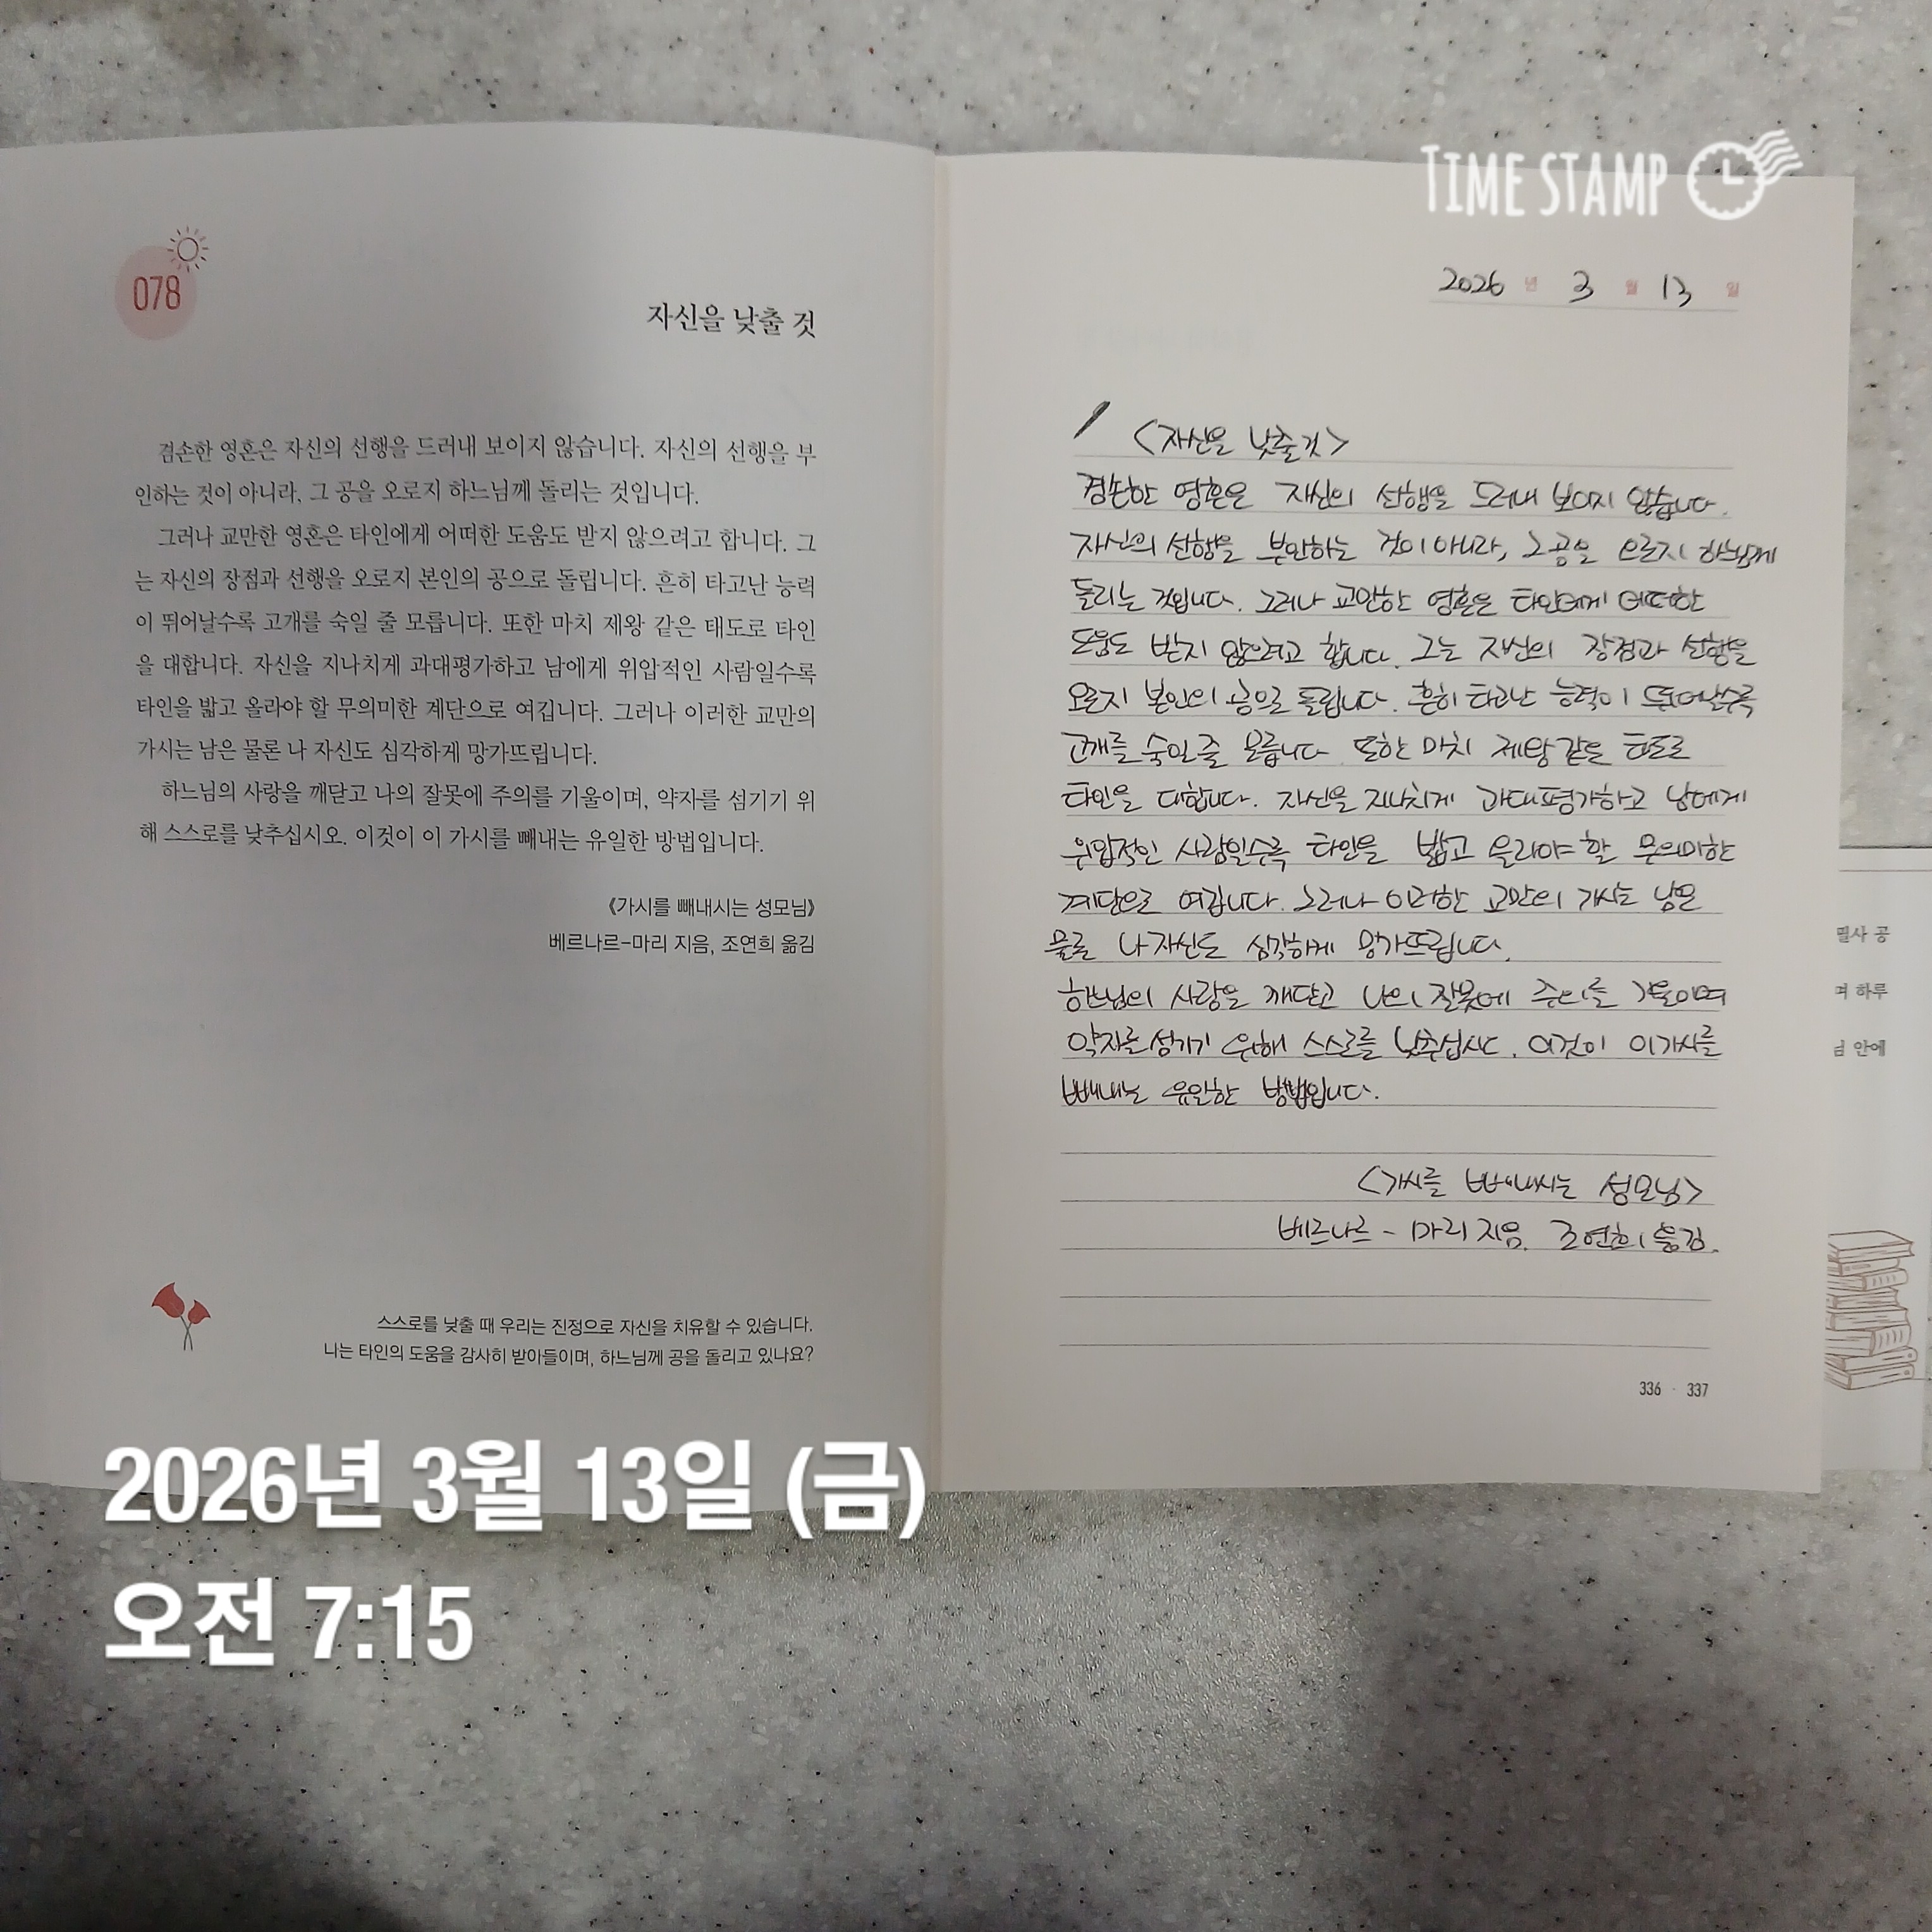 TIME STAMP
078
자신을 낮출 것
겸손한 영혼은 자신의 선행을 드러내 보이지 않습니다. 자신의 선행을 부
인하는 것이 아니라, 그 공을 오로지 하느님께 돌리는 것입니다.
그러나 교만한 영혼은 타인에게 어떠한 도움도 받지 않으려고 합니다. 그
는 자신의 장점과 선행을 오로지 본인의 공으로 돌립니다. 흔히 타고난 능력
이 뛰어날수록 고개를 숙일 줄 모릅니다. 또한 마치 제왕 같은 태도로 타인
을 대합니다. 자신을 지나치게 과대평가하고 남에게 위압적인 사람일수록
타인을 밟고 올라야 할 무의미한 계단으로 여깁니다. 그러나 이러한 교만의
가시는 남은 물론 나 자신도 심각하게 망가뜨립니다.
하느님의 사랑을 깨닫고 나의 잘못에 주의를 기울이며, 약자를 섬기기 위
해 스스로를 낮추십시오. 이것이 이 가시를 빼내는 유일한 방법입니다.
《가시를 빼내시는 성모님》
베르나르-마리 지음, 조연희 옮김
스스로를 낮출 때 우리는 진정으로 자신을 치유할 수 있습니다.
나는 타인의 도움을 감사히 받아들이며, 하느님께 공을 돌리고 있나요?
2026 년 3 월 13 일
<자신을 낮출 것>
겸손한 영혼은 자신의 선행을 드러내 보이지 않습니다.
자신의 선행을 부인하는 것이 아니라, 그 공을 오로지 하느님께
돌리는 것입니다. 그러나 교만한 영혼은 타인에게 어떠한
도움도 받지 않으려고 합니다. 그는 자신의 장점과 선행을
오로지 본인의 공으로 돌립니다. 흔히 타고난 능력이 뛰어날수록
고개를 숙일 줄 모릅니다. 또한 마치 제왕 같은 태도로
타인을 대합니다. 자신을 지나치게 과대평가하고 남에게
위압적인 사람일수록 타인을 밟고 올라야 할 무의미한
계단으로 여깁니다. 그러나 이러한 교만의 가시는 남은
물론 나 자신도 심각하게 망가뜨립니다.
하느님의 사랑을 깨닫고 나의 잘못에 주의를 기울이며
약자를 섬기기 위해 스스로를 낮추십시오. 이것이 이 가시를
빼내는 유일한 방법입니다.
<가시를 빼내시는 성모님>
베르나르 - 마리 지음. 조연희 옮김.
336 · 337
필사 공
며 하루
님 안에
2026년 3월 13일 (금)
오전 7:15